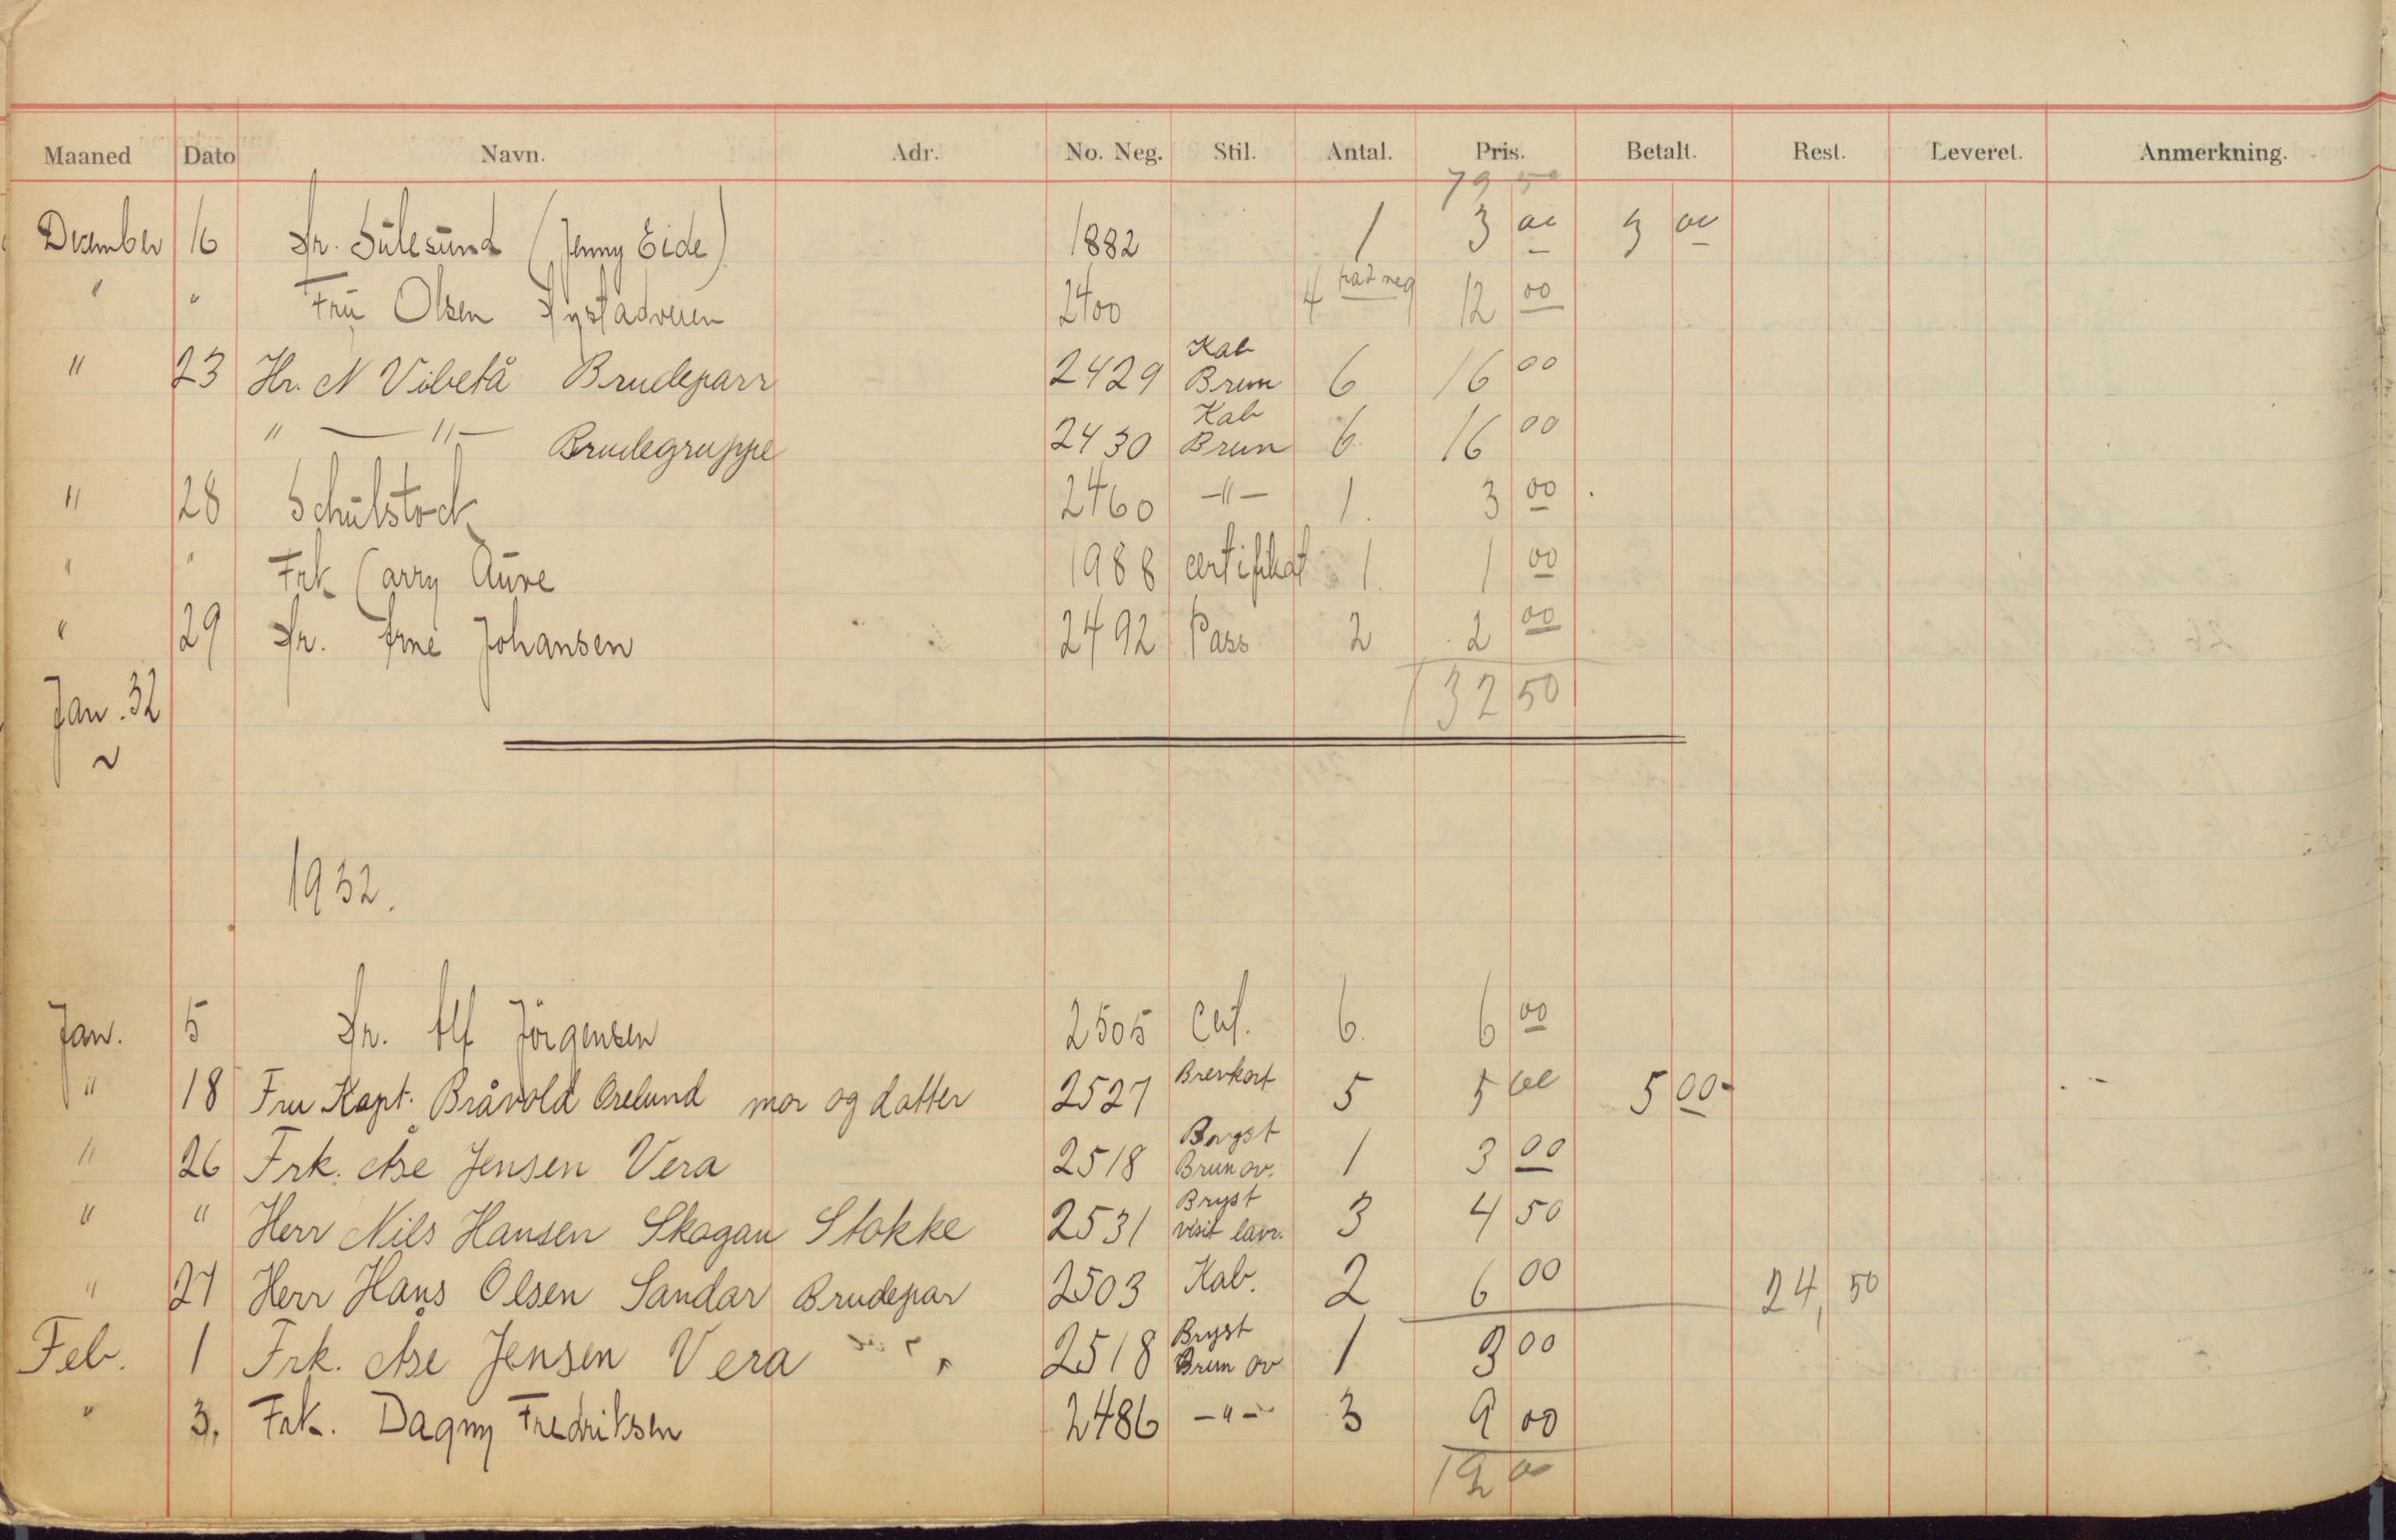 Maaned Dato Navn. Adr. No. Neg. Stil. Antal. Pris. Betalt. Rest. Leveret. Anmerkning.
79 50
December 16 Hr. Sülesünd (Jenny Eide) 1882 1 3 00 3 00
" " Frü Olsen 2400 4 12 00
" 23 Hr. N Vibetå Brudeparr 2429 Kab Brun 6 16 00
" — " — Brudegruppe 2430 Kab Brun 6. 16 00
" 28 Schülstock 2460 —"— 1. 3 00
" " Frk Carry Aüre 1988 certifikat 1. 1 00
" 29 Hr. Arne Johansen 2492 Pass 2 2 00
Jan. 32 132 50
1932.
Jan. 5 Hr. Alf Jörgensen 2505 Cert. 6. 6 00
" 18 Fru Kapt. Bråvold Orelund mor og datter 2527 Brevkort 5 5 00 5 00-
" 26 Frk. Åse Jensen Vera 2518 Bryst Brun ov. 1 3 00
" " Herr Nils Hansen Skagan Stokke 2531 Bryst visit lavr. 3 4 50
" 27 Herr Hans Olsen Sandar Brudepar 2503 Kab. 2 6 00 24,50
Feb. 1 Frk. Åse Jensen Vera 2518 Bryst Brun ov 1 3 00
" 3. Frk. Dagny Fredriksen 2486 —"— 3 9 00
12 00